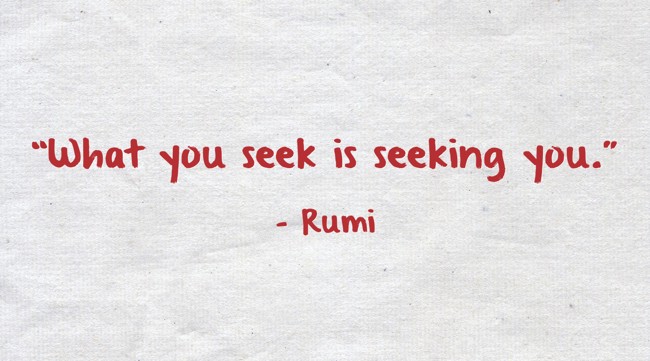 “What you seek is seeking you.”
- Rumi